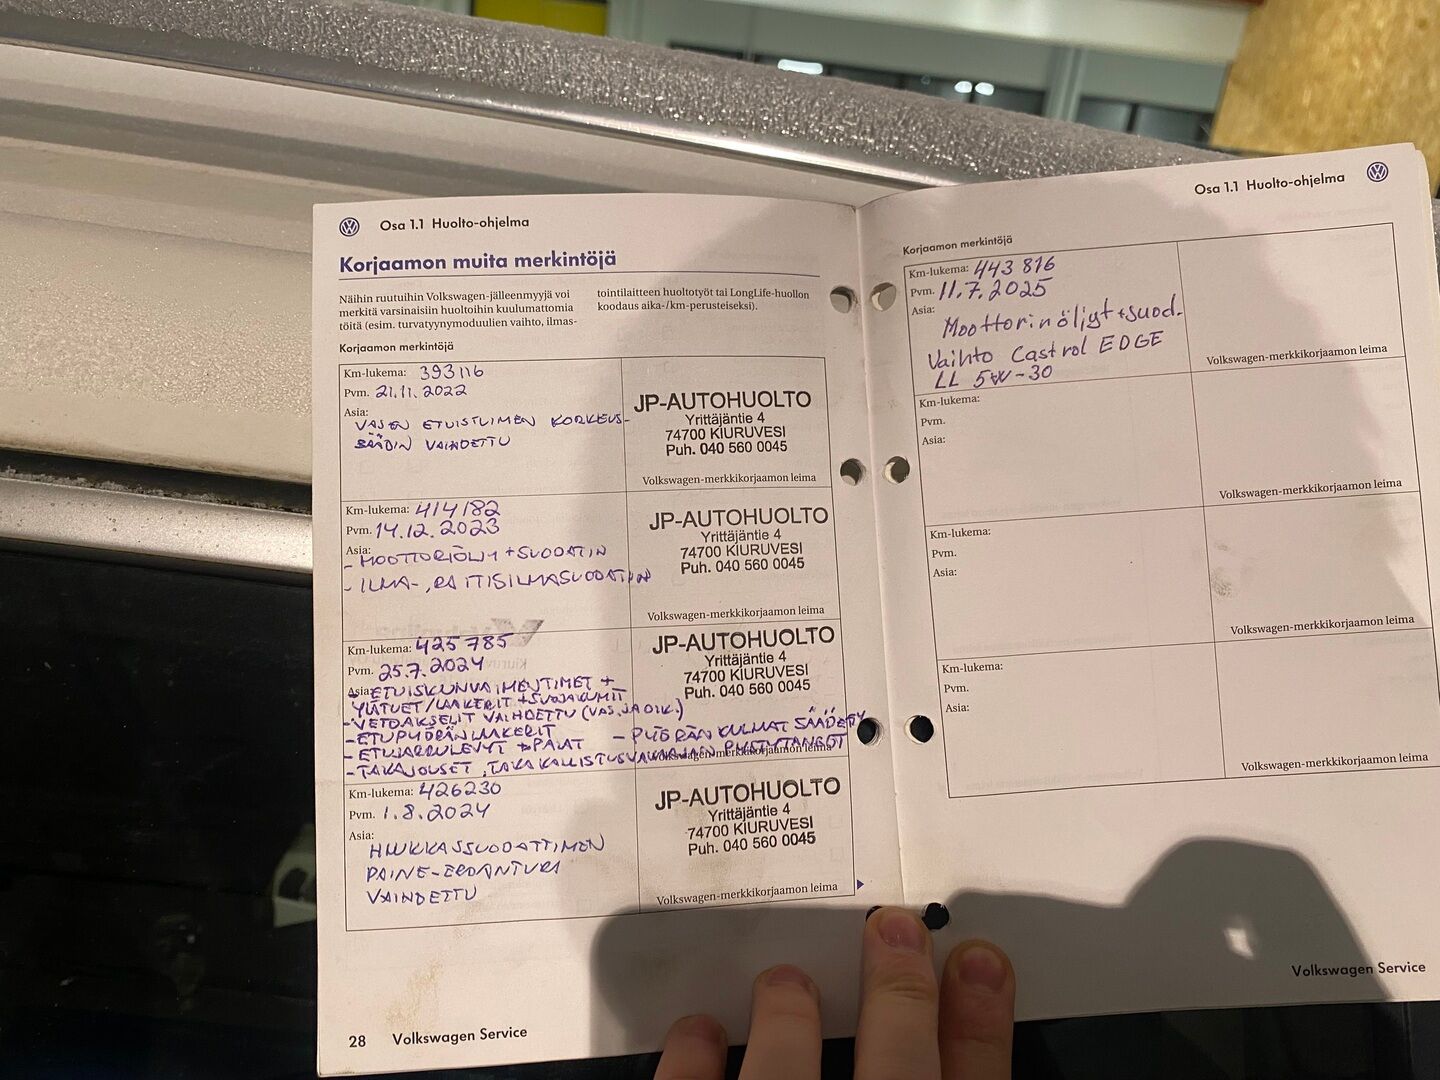 Osa 1.1 Huolto-ohjelma
Korjaamon muita merkintöjä
Näihin ruutuihin Volkswagen-jälleenmyyjä voi
merkitä varsinaisiin huoltoihin kuulumattomia
töitä (esim. turvatyynymoduulien vaihto, ilmas-
tointilaitteen huoltotyöt tai LongLife-huollon
koodaus aika-/km-perusteiseksi).
Korjaamon merkintöjä
Km-lukema: 393116
Pvm. 21.11.2022
Asia:
VASEN ETUISTUIMEN KORKEUS-
SÄÄDIN VAIHDETTU
JP-AUTOHUOLTO
Yrittäjäntie 4
74700 KIURUVESI
Puh. 040 560 0045
Volkswagen-merkkikorjaamon leima
Km-lukema: 414182
Pvm. 14.12.2023
Asia:
- MOOTTORIÖLJY + SUODATIN
- ILMA-, RAITISILMASUODATIN
JP-AUTOHUOLTO
Yrittäjäntie 4
74700 KIURUVESI
Puh. 040 560 0045
Volkswagen-merkkikorjaamon leima
Km-lukema: 425785
Pvm. 25.7.2024
Asia:
- ETUISKUNVAIMENTIMET +
YLÄTUET/LAAKERIT + SUOJAKUMIT
- VETOAKSELIT VAIHDETTU (VAS. JA OIK.)
- ETUPYÖRÄN LAAKERIT - PYÖRÄNKULMAT SÄÄDETTY
- ETUJARRULEVYT + PALAT
- TAKAJOUSET, TAKAKALLISTUSVAKAAJAN PYSTYTANGOT
JP-AUTOHUOLTO
Yrittäjäntie 4
74700 KIURUVESI
Puh. 040 560 0045
Volkswagen-merkkikorjaamon leima
Km-lukema: 426230
Pvm. 1.8.2024
Asia:
HIUKKASSUODATTIMEN
PAINE-EROANTURI
VAIHDETTU
JP-AUTOHUOLTO
Yrittäjäntie 4
74700 KIURUVESI
Puh. 040 560 0045
Volkswagen-merkkikorjaamon leima
28 Volkswagen Service
Osa 1.1 Huolto-ohjelma
Korjaamon merkintöjä
Km-lukema: 443 816
Pvm. 11.7.2025
Asia:
Moottorinöljyt + suod.
Vaihto Castrol EDGE
LL 5W-30
Volkswagen-merkkikorjaamon leima
Km-lukema:
Pvm.
Asia:
Volkswagen-merkkikorjaamon leima
Km-lukema:
Pvm.
Asia:
Volkswagen-merkkikorjaamon leima
Km-lukema:
Pvm.
Asia:
Volkswagen-merkkikorjaamon leima
Volkswagen Service